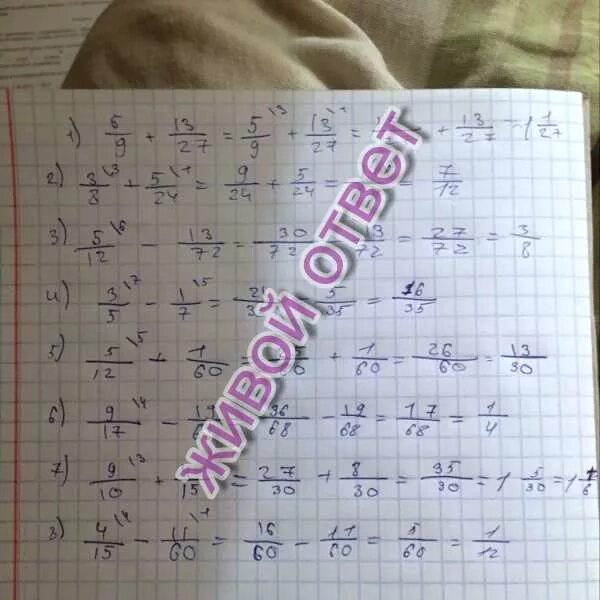 1) 5/9 + 13/27 = 5/9 \3 + 13/27 \1 = + 13/27 = 1 1/27
2) 3/8 \3 + 5/24 \1 = 9/24 + 5/24 = = 7/12
3) 5/12 \6 - 13/72 = 30/72 13/72 = 27/72 = 3/8
4) 3/5 \7 - 1/7 \5 = 5/35 = 16/35
5) 5/12 \5 + 1/60 = + 1/60 = 26/60 = 13/30
6) 9/17 \4 - 36/68 - 19/68 = 17/68 = 1/4
7) 9/10 \3 + 15 = 27/30 + 8/30 = 35/30 = 1 5/30 = 1 1/6
8) 4/15 \4 - 11/60 \1 = 16/60 - 11/60 = 5/60 = 1/12
ЖИВОЙ ОТВЕТ